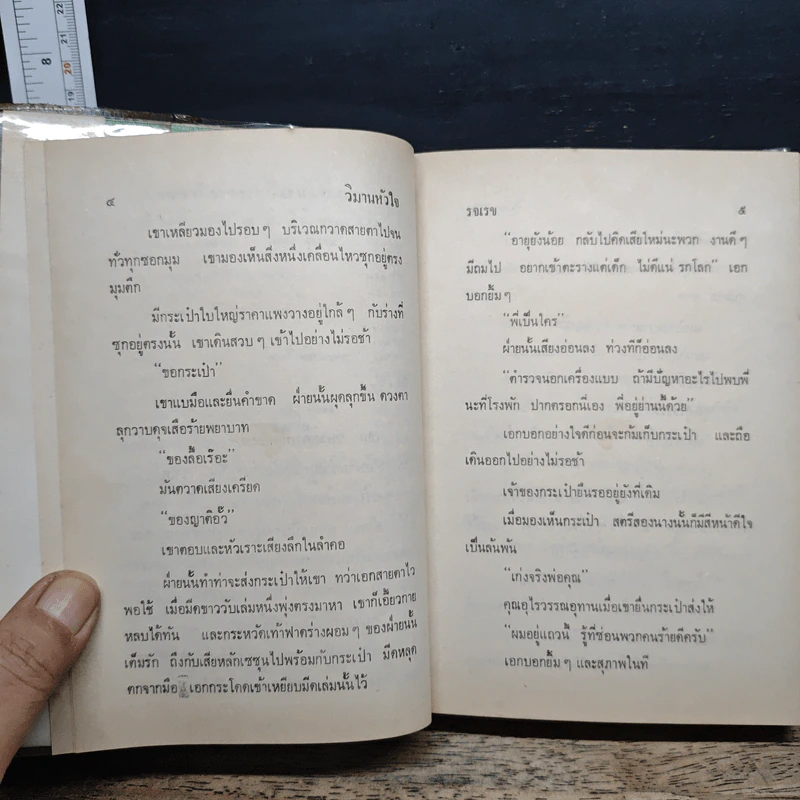 8
22
21
20
19
๔
วิมานหัวใจ
เขาเหลียวมองไปรอบๆ บริเวณกวาดสายตาไปจน
ทั่วทุกซอกมุม เขามองเห็นสิ่งหนึ่งเคลื่อนไหวซุกอยู่ตรง
มุมตึก
มีกระเป๋าใบใหญ่ราคาแพงวางอยู่ใกล้ๆ กับร่างที่
ซุกอยู่ตรงนั้น เขาเดินสวบๆ เข้าไปอย่างไม่รอช้า
“ขอกระเป๋า”
เขาแบมือและยื่นคำขาด ฝ่ายนั้นผุดลุกขึ้น ดวงตา
ลุกวาบดุจเสือร้ายพยาบาท
“ของลื้อเรือะ”
มันตวาดเสียงเครียด
“ของญาติอั๊ว”
เขาตอบและหัวเราะเสียงลึกในลำคอ
ฝ่ายนั้นทำท่าจะส่งกระเป๋าให้เขา ทว่าเอกสายตาไว
พอใช้ เมื่อมีดขาววับเล่มหนึ่งพุ่งตรงมาหา เขาก็เอี้ยวกาย
หลบได้ทัน และกระหวัดเท้าฟาดร่างผอมๆ ของฝ่ายนั้น
เต็มรัก ถึงกับเสียหลักเซซุนไปพร้อมกับกระเป๋า มีดหลุด
ตกจากมือ เอกกระโดดเข้าเหยียบมีดเล่มนั้นไว้
รจเรข
๕
“อายุยังน้อย กลับไปคิดเสียใหม่นะพวก งานดีๆ
มีถมไป อยากเข้าตะรางแต่เด็ก ไม่ดีแน่ รกโลก” เอก
บอกยิ้มๆ
“พี่เป็นใคร”
ฝ่ายนั้นเสียงอ่อนลง ท่วงทีก็อ่อนลง
“ตำรวจนอกเครื่องแบบ ถ้ามีปัญหาอะไรไปพบพี่
นะที่โรงพัก ปากตรอกนี่เอง พี่อยู่ย่านนี้ด้วย”
เอกบอกอย่างใจดีก่อนจะก้มเก็บกระเป๋า และถือ
เดินออกไปอย่างไม่รอช้า
เจ้าของกระเป๋ายืนรออยู่ยังที่เดิม
เมื่อมองเห็นกระเป๋า สตรีสองนางนั้นก็มีสีหน้าดีใจ
เป็นล้นพ้น
“เก่งจริงพ่อคุณ”
คุณอุไรวรรณอุทานเมื่อเขายื่นกระเป๋าส่งให้
“ผมอยู่แถวนี้ รู้ที่ซ่อนพวกคนร้ายดีครับ”
เอกบอกยิ้มๆ และสุภาพในที